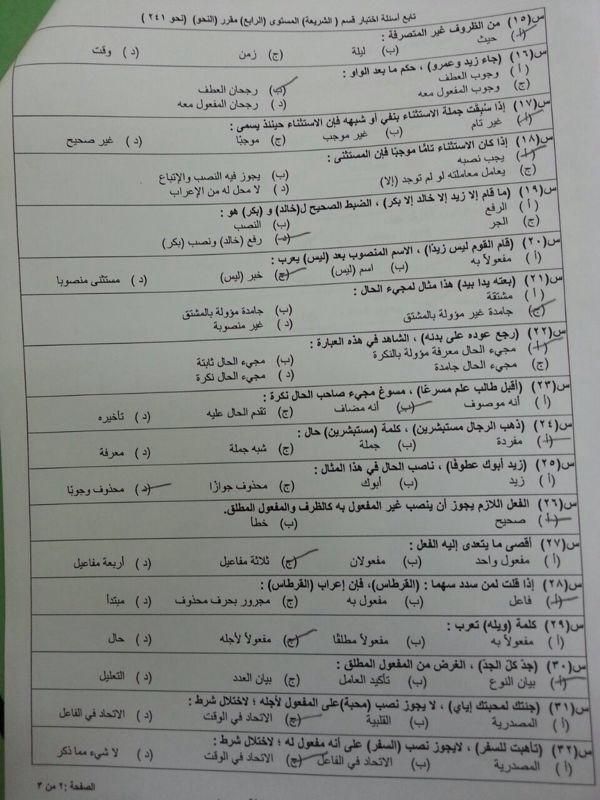 تابع أسئلة اختبار قسم ( الشريعة) المستوى (الرابع) مقرر (النحو) (نحو ٢٤١ )
س(١٥) من الظروف غير المتصرفة :
( أ ) حيث (ب) ليلة (ج) زمن ( د ) وقت
س(١٦) (جاء زيد وعمرو) ، حكم ما بعد الواو :
( أ ) وجوب العطف (ب) رجحان العطف
(ج) وجوب المفعول معه ( د ) رجحان المفعول معه
س(١٧) إذا سُبِقت جملة الاستثناء بنفي أو شبهه فإن الاستثناء حينئذ يسمى :
( أ ) غير تام (ب) غير موجب (ج) موجبًا ( د ) غير صحيح
س(١٨) إذا كان الاستثناء تامًا موجبًا فإن المستثنى :
( أ ) يجب نصبه (ب) يجوز فيه النصب والإتباع
(ج) يعامل معاملته لو لم توجد (إلا) ( د ) لا محل له من الإعراب
س(١٩) (ما قام إلا زيد إلا خالد إلا بكر) ، الضبط الصحيح ل(خالد) و (بكر) هو :
( أ ) الرفع (ب) النصب
(ج) الجر ( د ) رفع (خالد) ونصب (بكر)
س(٢٠) (قام القوم ليس زيدًا) ، الاسم المنصوب بعد (ليس) يعرب :
( أ ) مفعولاً به (ب) اسم (ليس) (ج) خبر (ليس) ( د ) مستثنى منصوبا
س(٢١) (بعته يدا بيد) هذا مثال لمجيء الحال :
( أ ) مشتقة (ب) جامدة مؤولة بالمشتق
(ج) جامدة غير مؤولة بالمشتق ( د ) غير منصوبة
س(٢٢) (رجع عوده على بدئه) ، الشاهد في هذه العبارة :
( أ ) مجيء الحال معرفة مؤولة بالنكرة (ب) مجيء الحال ثابتة
(ج) مجيء الحال جامدة ( د ) مجيء الحال نكرة
س(٢٣) (أقبل طالب علم مسرعًا) ، مسوغ مجيء صاحب الحال نكرة :
( أ ) أنه موصوف (ب) أنه مضاف (ج) تقدم الحال عليه ( د ) تأخيره
س(٢٤) (ذهب الرجال مستبشرين) ، كلمة (مستبشرين) حال :
( أ ) مفردة (ب) جملة (ج) شبه جملة ( د ) معرفة
س(٢٥) (زيد أبوك عطوفًا) ، ناصب الحال في هذا المثال :
( أ ) زيد (ب) أبوك (ج) محذوف جوازًا ( د ) محذوف وجوبًا
س(٢٦) الفعل اللازم يجوز أن ينصب غير المفعول به كالظرف والمفعول المطلق.
( أ ) صحيح (ب) خطأ
س(٢٧) أقصى ما يتعدى إليه الفعل :
( أ ) مفعول واحد (ب) مفعولان (ج) ثلاثة مفاعيل ( د ) أربعة مفاعيل
س(٢٨) إذا قلت لمن سدد سهما : (القرطاس)، فإن إعراب (القرطاس) :
( أ ) فاعل (ب) مفعول به (ج) مجرور بحرف محذوف ( د ) مبتدأ
س(٢٩) كلمة (ويله) تعرب :
( أ ) مفعولاً به (ب) مفعولاً مطلقًا (ج) مفعولاً لأجله ( د ) حال
س(٣٠) (جِدّ كلّ الجدّ) ، الغرض من المفعول المطلق :
( أ ) بيان النوع (ب) تأكيد العامل (ج) بيان العدد ( د ) التعليل
س(٣١) (جئتك لمحبتك إياي) ، لا يجوز نصب (محبة)على المفعول لأجله ؛ لاختلال شرط :
( أ ) المصدرية (ب) القلبية (ج) الاتحاد في الوقت ( د ) الاتحاد في الفاعل
س(٣٢) (تأهبت للسفر) ، لايجوز نصب (السفر) على أنه مفعول له ؛ لاختلال شرط :
( أ ) المصدرية (ب) الاتحاد في الفاعل (ج) الاتحاد في الوقت ( د ) لا شيء مما ذكر
الصفحة : ٢ من ٣